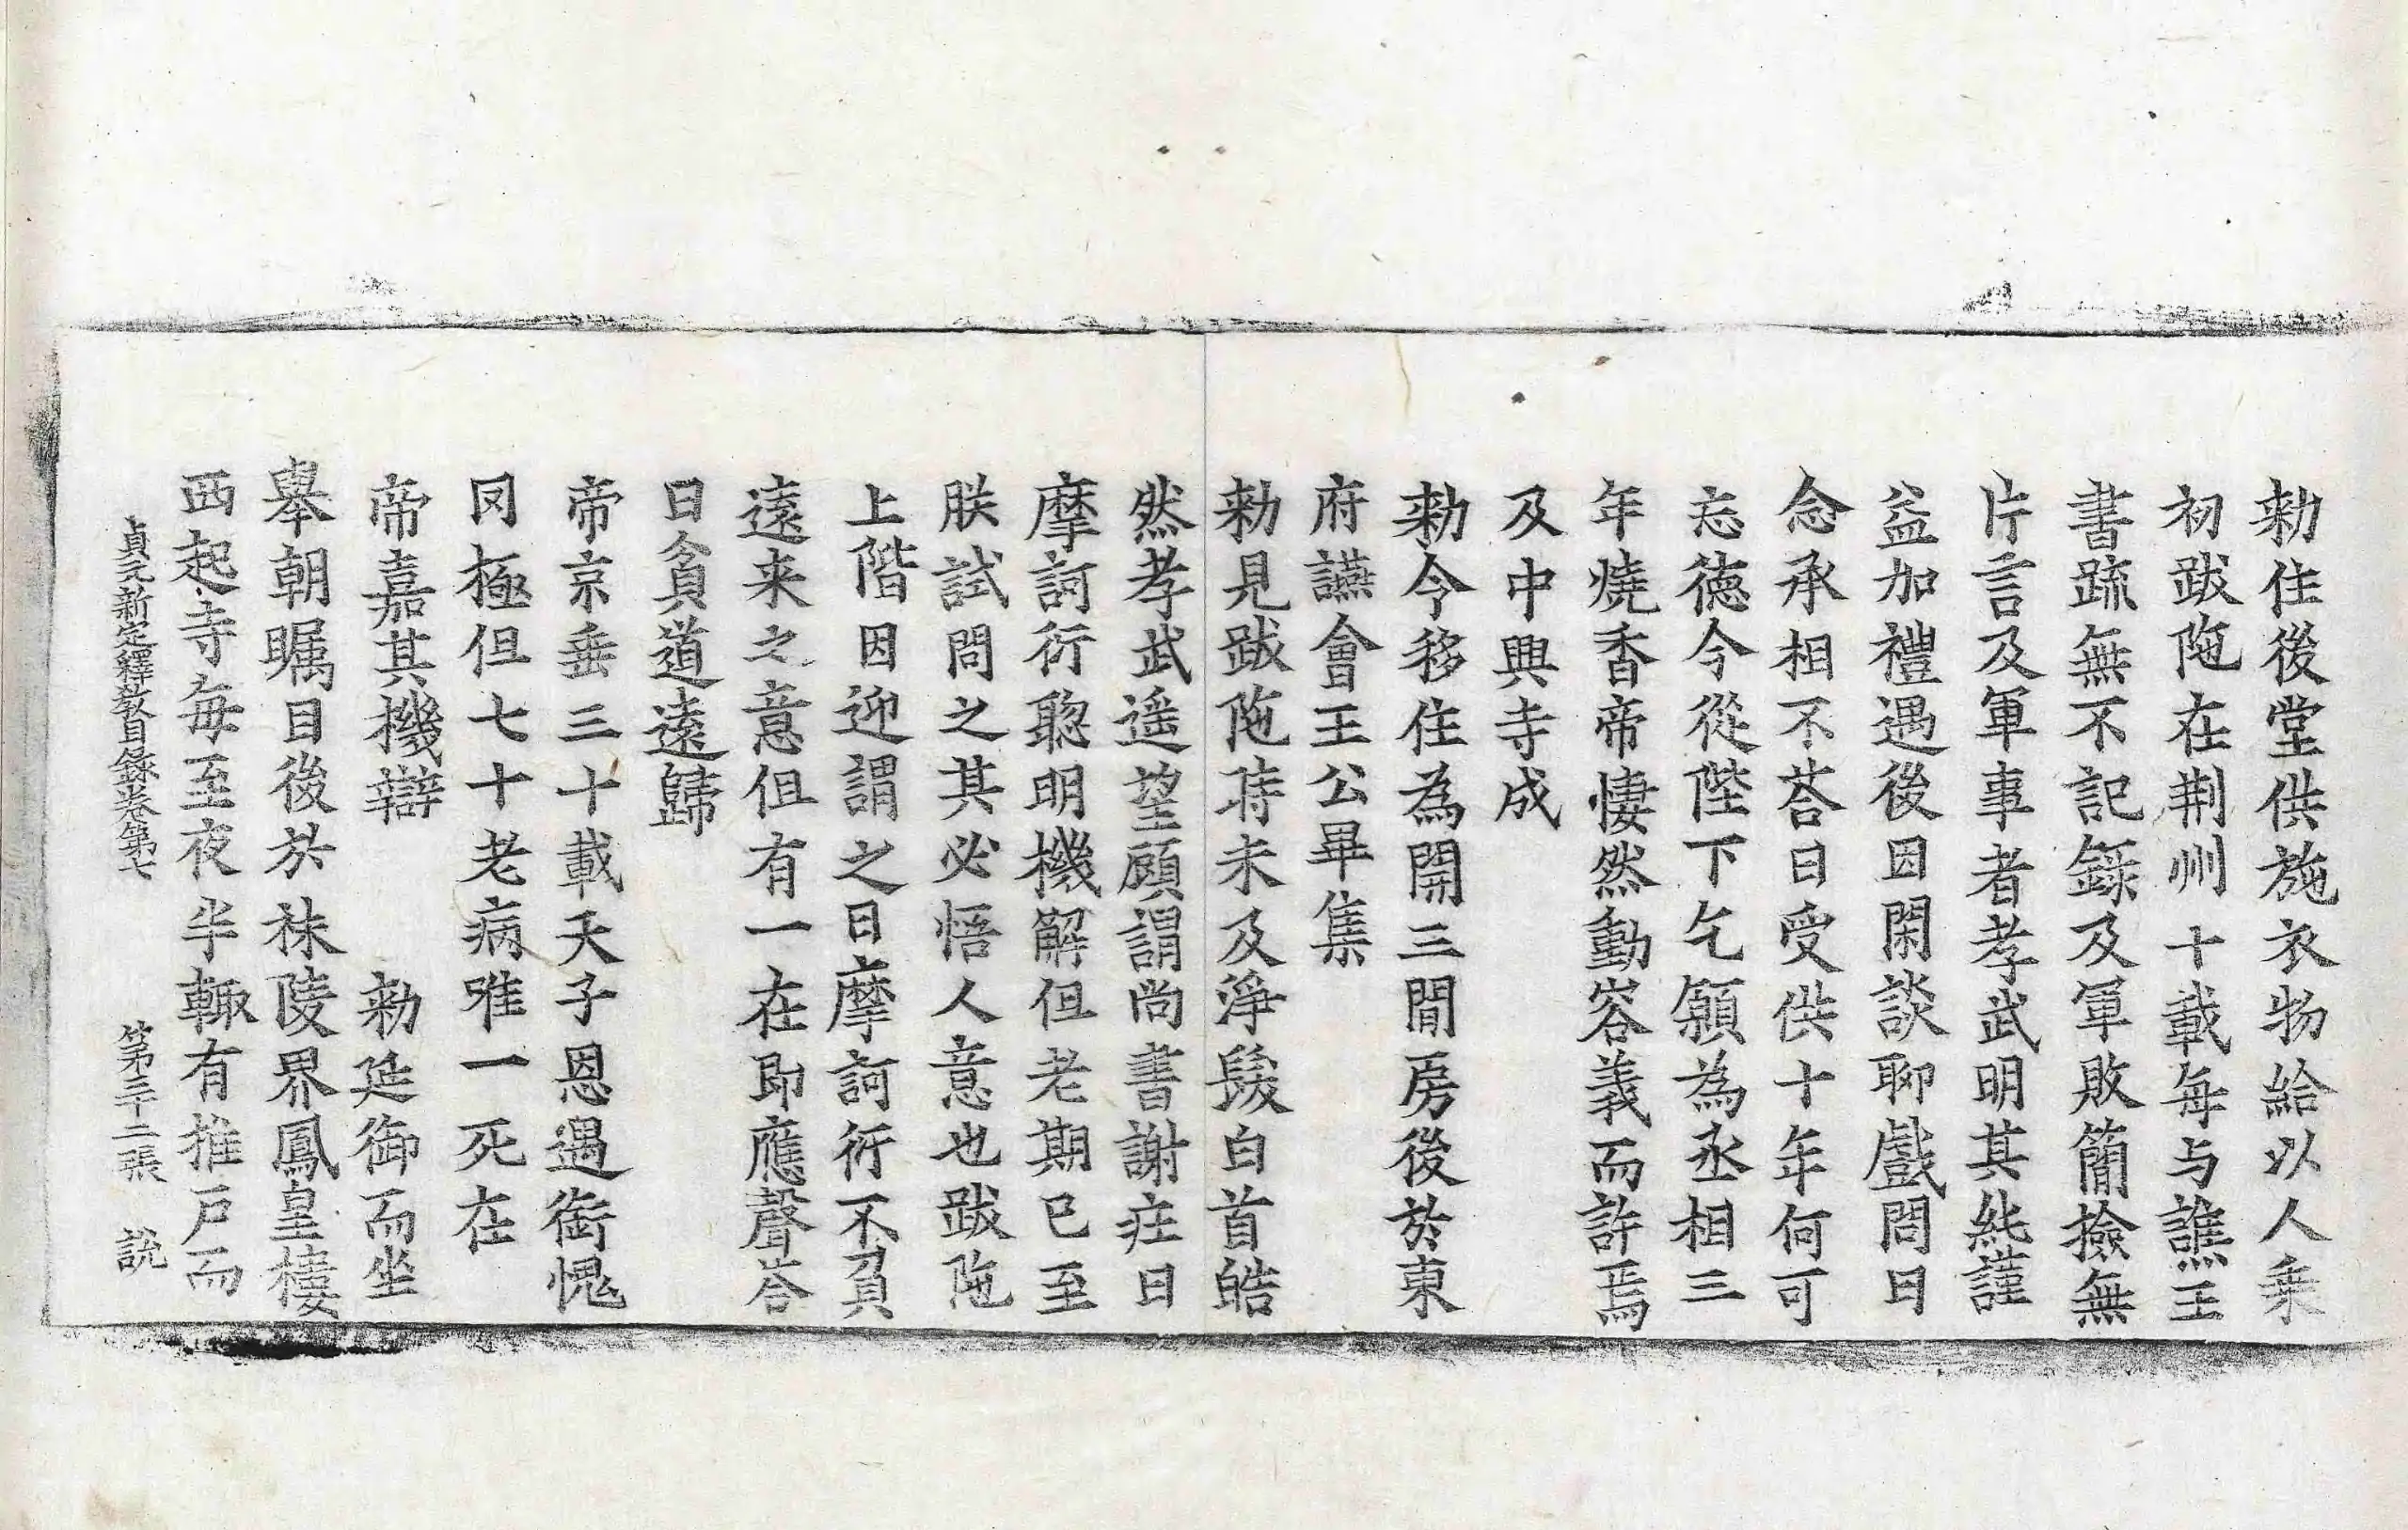 勑住後堂供施衣物給以人乗
初跋陁在荆州十載每与譙王
書䟽無不記録及軍敗簡撿無
片言及軍事者孝武明其純謹
益加禮遇後因閑談聊戲問曰
念承相不荅曰受供十年何可
忘徳今從陛下乞願為丞相三
年燒香帝悽然動容義而許焉
及中興寺成
勑令移住為開三間房後於東
府讌會王公畢集
勑見跋陁時未及淨髮白首皓
然孝武遥望顧謂尚書謝莊曰
摩訶衍聦明機解但老期已至
朕試問之其必悟人意也跋陁
上階因迎謂之曰摩訶衍不負
遠来之意但有一在即應聲荅
曰貧道遠歸
帝京垂三十載天子恩遇銜愧
罔極但七十老病唯一死在
帝嘉其機辯　勑延御而坐
舉朝矚目後於秣陵界鳳皇樓
西起寺每至夜半輙有推戸而
貞元新定釋教目錄卷第七　第三十二張　說